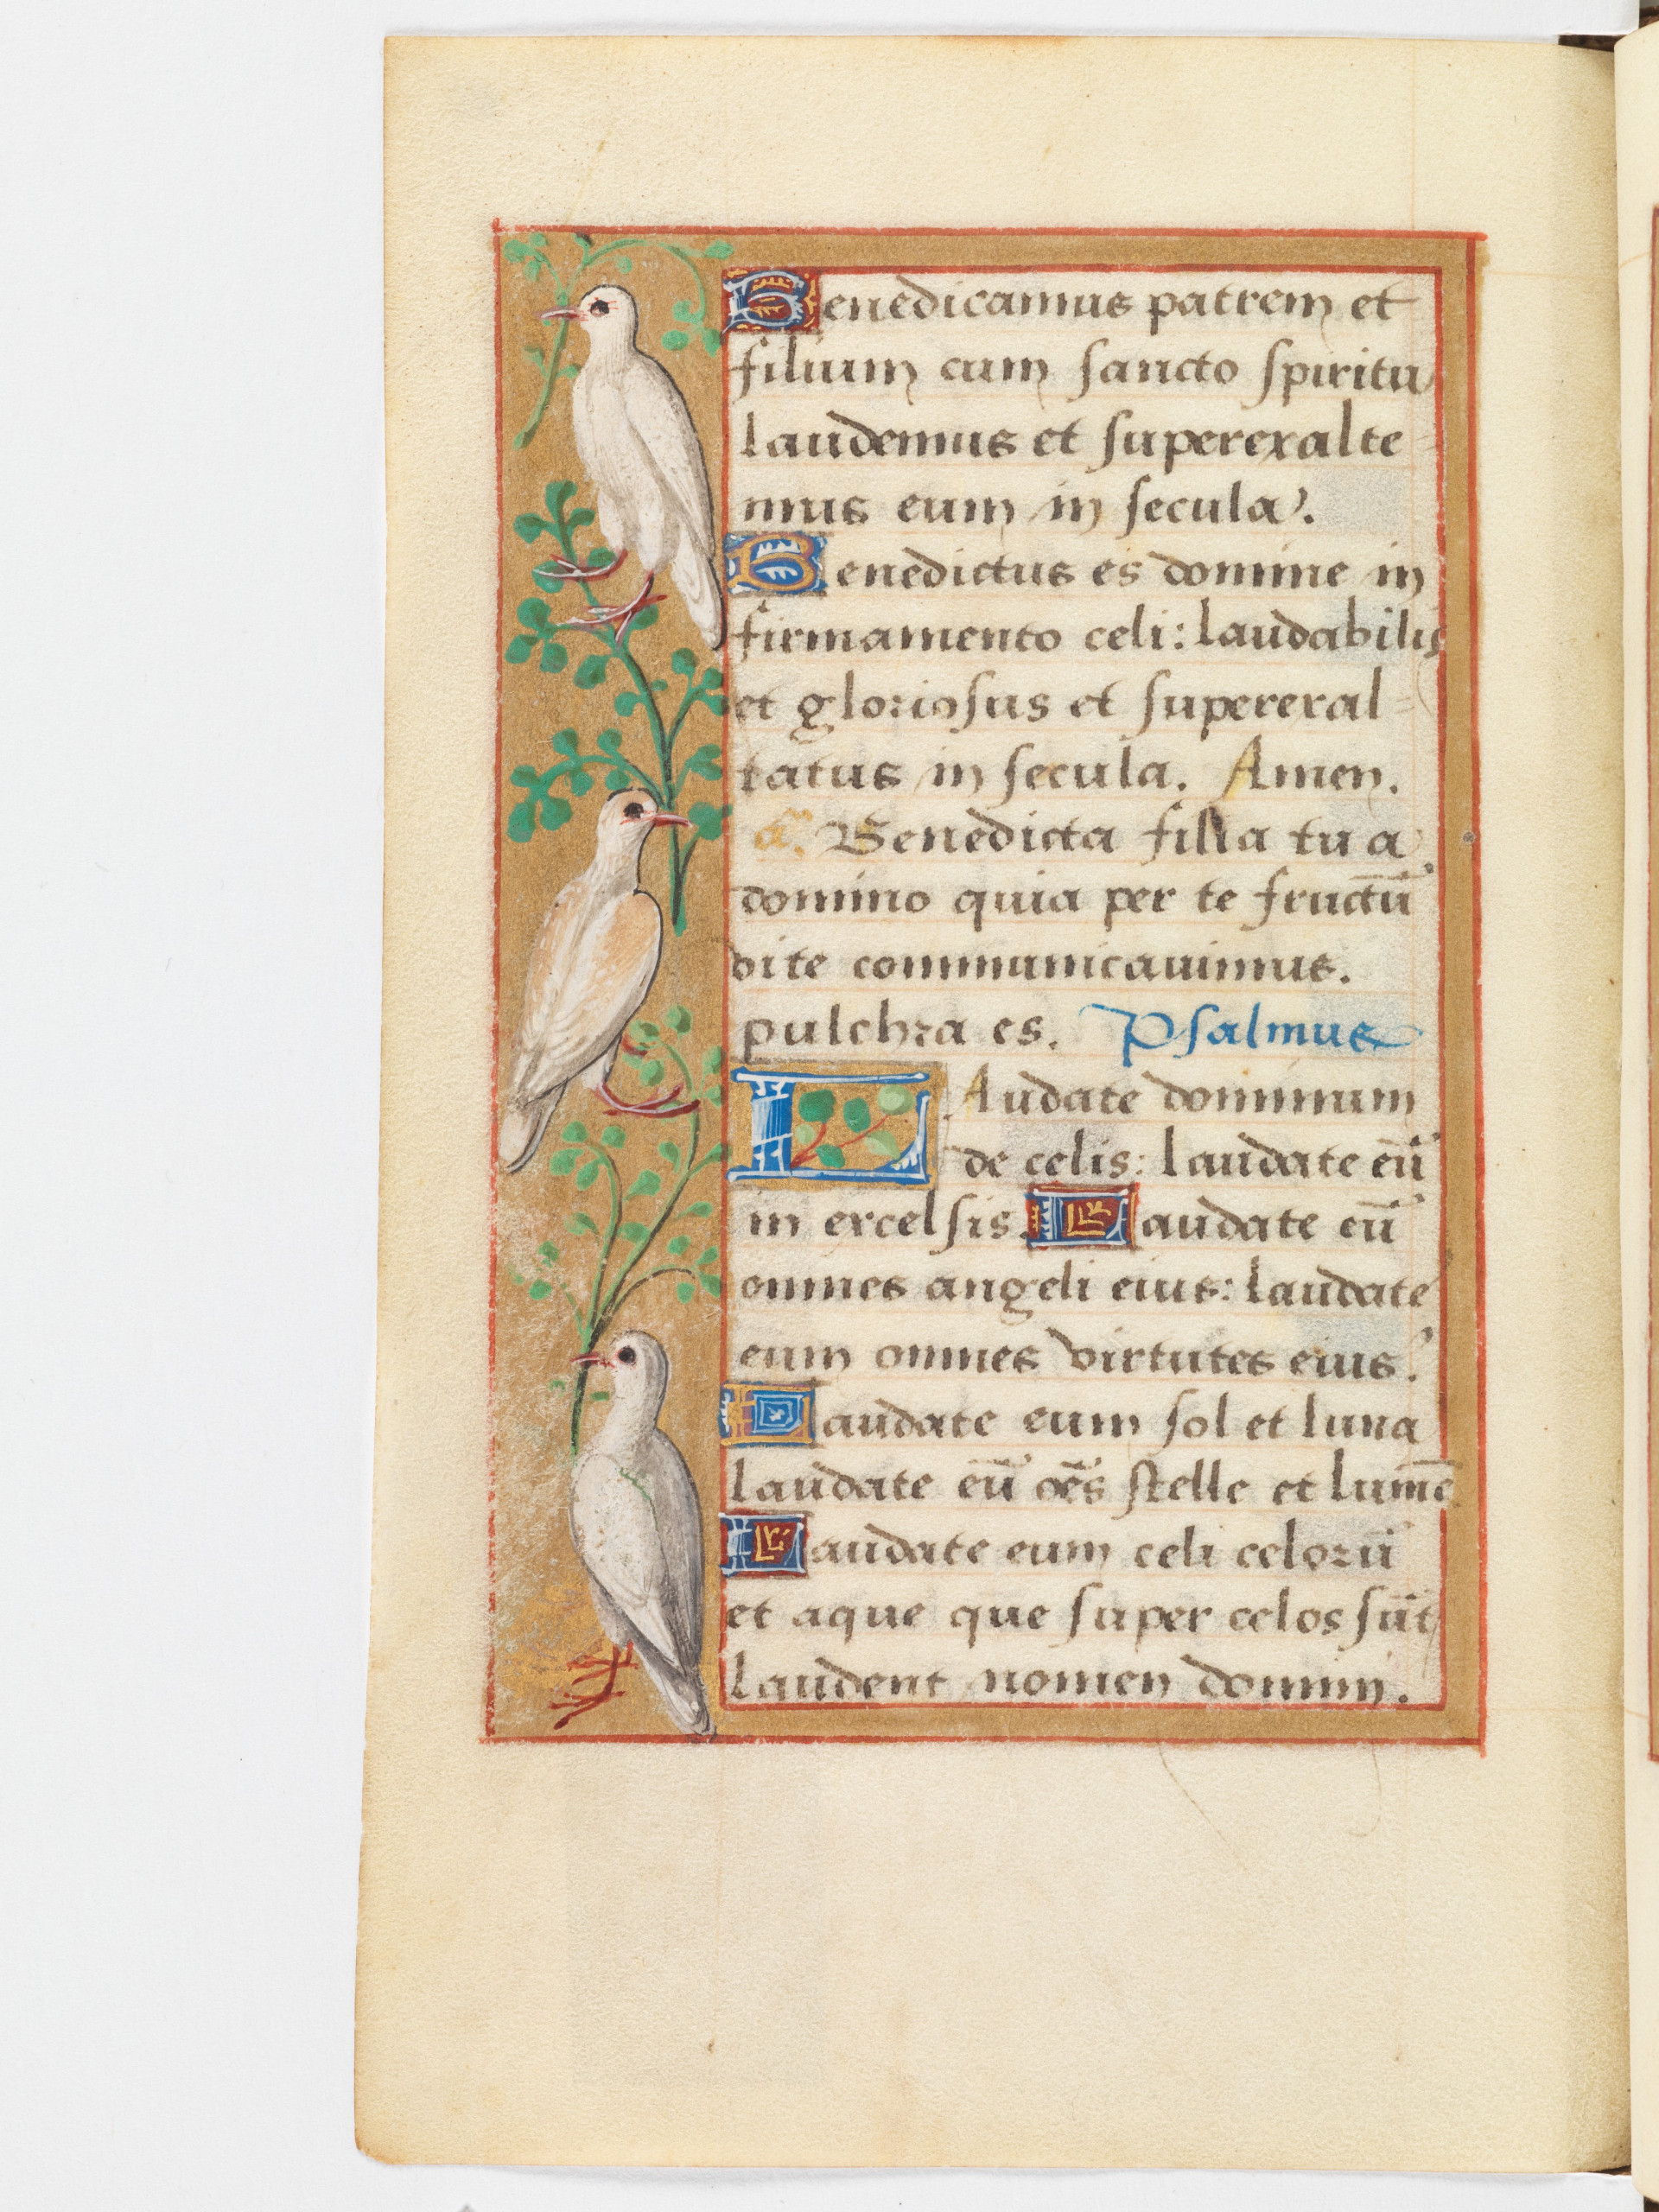 Benedicamus patrem et
filium cum sancto spiritu
laudemus et superexalte=
mus eum in secula.
Benedictus es domine in
firmamento celi: laudabilis
et gloriosus et superexal=
tatus in secula. Amen.
a. Benedicta filia tu a
domino quia per te fructū
vite communicavimus.
pulchra es. Psalmus
LAudate dominum
de celis: laudate eū
in excelsis. Laudate eū
omnes angeli eius: laudate
eum omnes virtutes eius.
Laudate eum sol et luna
laudate eū oēs stelle et lumē
Laudate eum celi celorū
et aque que super celos sūt
laudent nomen domini.